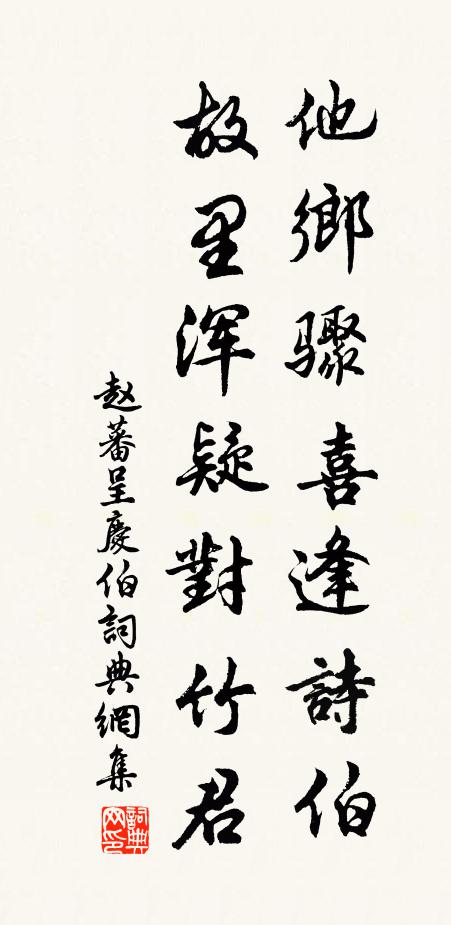 他鄉骤喜逢詩伯
故里浑疑對竹君
赵蕃呈慶伯詞典網集
詞典网印